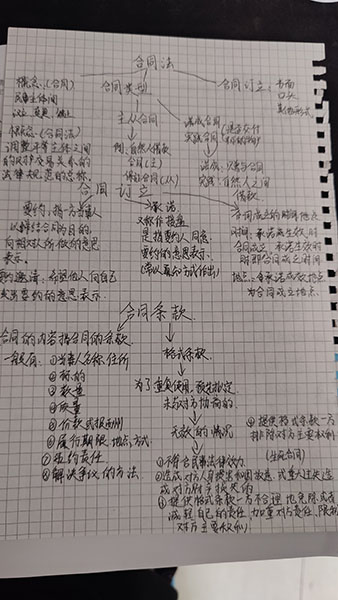 合同法
概念:(合同)
民事主体间
设立、变更、终止
概念:(合同法)
调整平等主体之间
的财产交易关系的
法律规范的总称.
合同类型
主从合同
例:自然人借款
合同(主)
合同(从)
诺成合同
实践合同
诺成:
实践:自然人之间
借款
合同订立
书面
口头
其他形式
合同订立
要约:指
以缔结合同为目的,
向相对人所做的意思
表示.
要约邀请:希望他人向自己
发出要约的意思表示.
承诺
又称作接盘
是指受要约人同意
要约的意思表示.
合同成立的时间地点
时间:承诺生效时
合同成立,承诺生效的
时间即合同成立时间
地点:承诺生效地点
为合同成立地点.
合同条款
合同的内容指合同的条款
一般有:①当事人名称、住所
②标的
③数量
④质量
⑤价款或报酬
⑥履行期限、地点、方式
⑦违约责任
⑧解决争议的方法
格式条款
为了重复使用,预先拟定
未与对方协商的
无效的情况
①不符合民事法律效力
②造成对方人身损害和因故意、或重大过失造
成对方财产损失的
③提供格式条款一方不合理地免除或者
减轻自己的责任、加重对方责任、限制
对方主要权利
④提供格式条款一方
排除对方主要权利